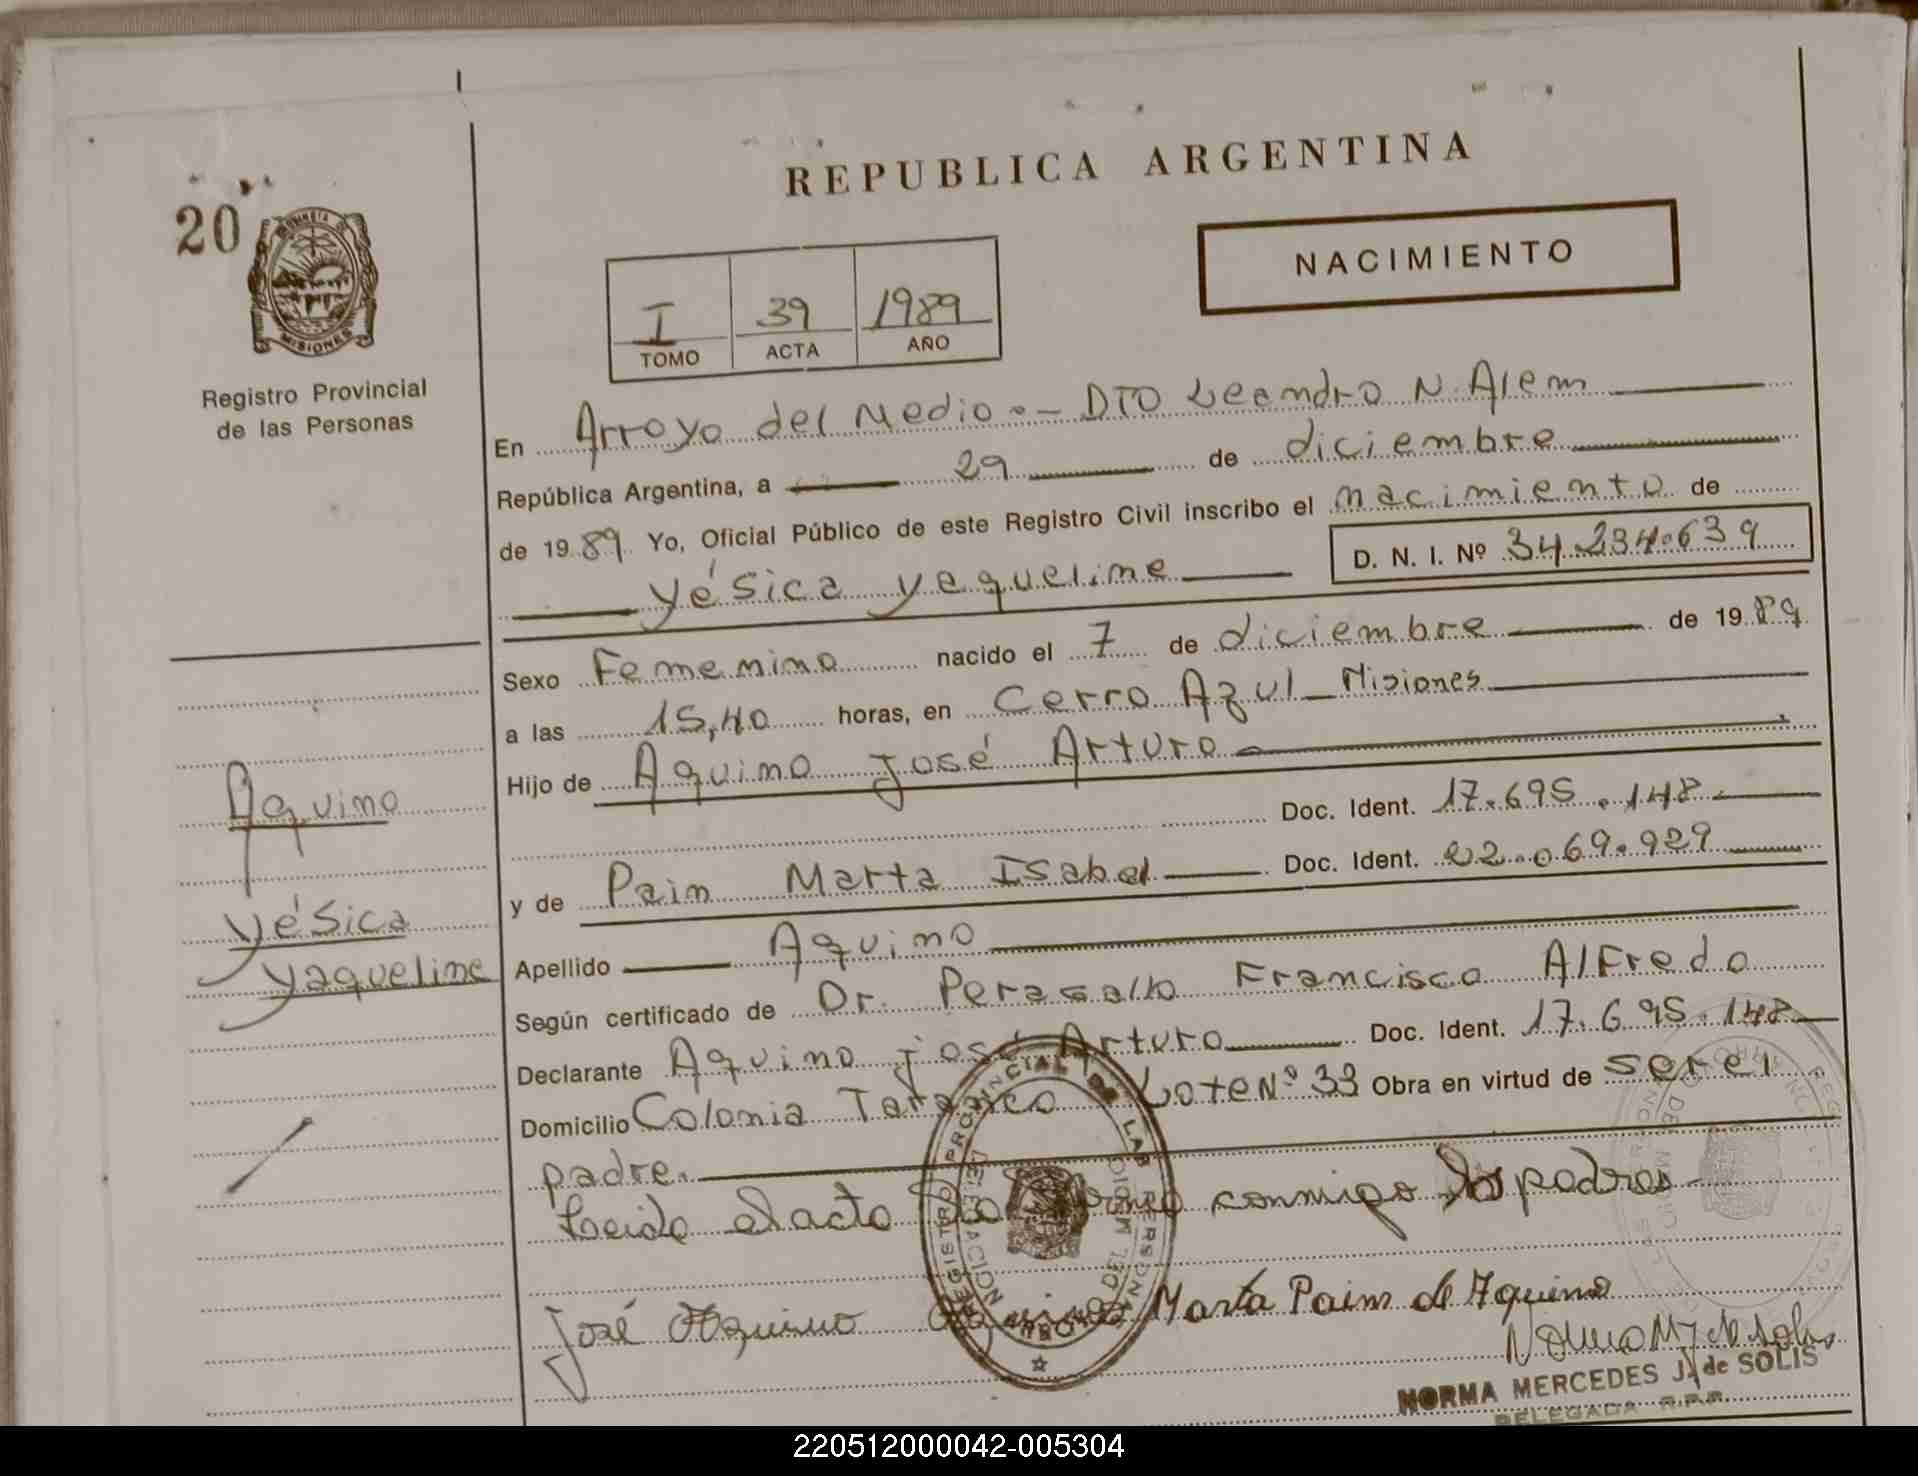 REPUBLICA ARGENTINA
20
MISIONES
Registro Provincial
de las Personas
NACIMIENTO
I 39 1989
TOMO ACTA AÑO
En Arroyo del Medio.- DTO Leandro N. Alem
República Argentina, a 29 de diciembre
de 1989 Yo, Oficial Público de este Registro Civil inscribo el nacimiento de
Yésica Yaqueline D. N. I. Nº 34.234.639
Sexo Femenino nacido el 7 de diciembre de 1989
a las 15,40 horas, en Cerro Azul - Misiones
Hijo de Aquino José Arturo
Doc. Ident. 17.695.148
y de Paim Marta Isabel Doc. Ident. 22.069.929
Apellido Aquino
Según certificado de Dr. Perasallo Francisco Alfredo
Declarante Aquino José Arturo Doc. Ident. 17.695.148
Domicilio Colonia Lote Nº 33 Obra en virtud de ser el
padre.
Leida el acta conmigo los padres
José Aquino Marta Paim de Aquino
NORMA MERCEDES J. de SOLIS
DELEGADA R.P.P.
Aquino
Yésica
Yaqueline
REGISTRO PROVINCIAL DE LAS PERSONAS
DELEGACION
ARROYO DEL MEDIO
220512000042-005304